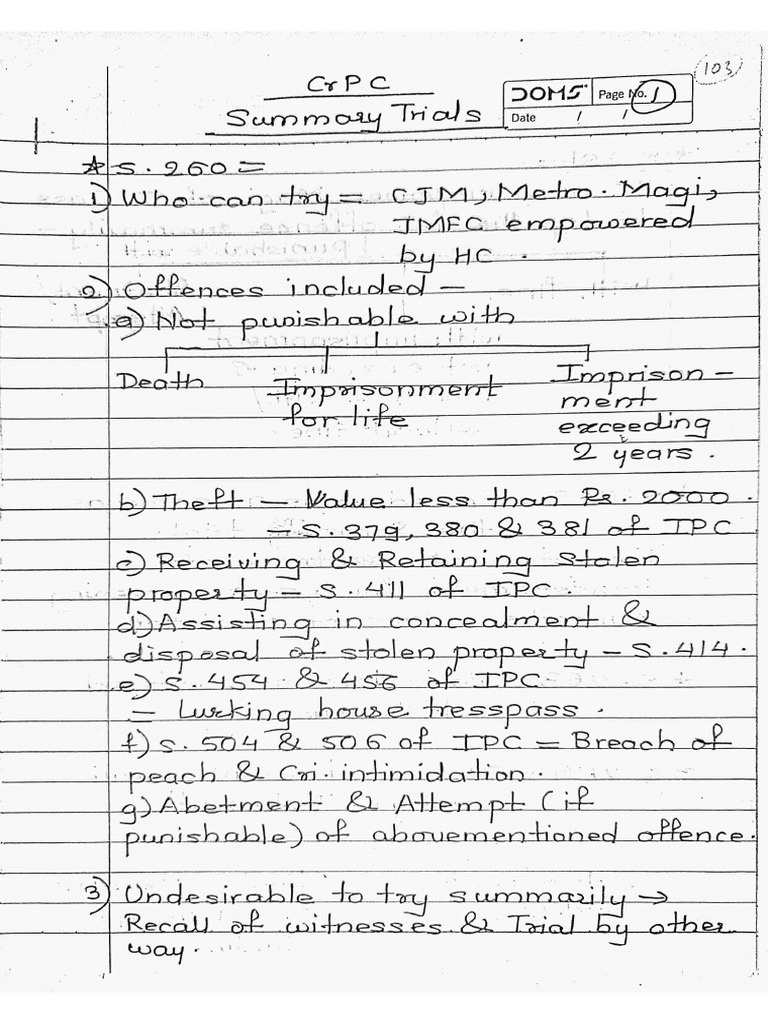 103
CrPC
Summary Trials
DOMS Page No. 1
Date / /
* S. 260 =
1) Who can try = CJM, Metro. Magi,
JMFC empowered
by HC.
2) Offences included -
a) Not punishable with
Death Imprisonment for life Imprison-
ment
exceeding
2 years.
b) Theft - Value less than Rs. 2000.
- S. 379, 380 & 381 of IPC
c) Receiving & Retaining stolen
property - S. 411 of IPC.
d) Assisting in concealment &
disposal of stolen property - S. 414.
e) S. 454 & 456 of IPC
= Lurking house tresspass.
f) S. 504 & 506 of IPC = Breach of
peach & Cri. intimidation.
g) Abetment & Attempt (if
punishable) of abovementioned offence.
3) Undesirable to try summarily →
Recall of witnesses & Trial by other
way.